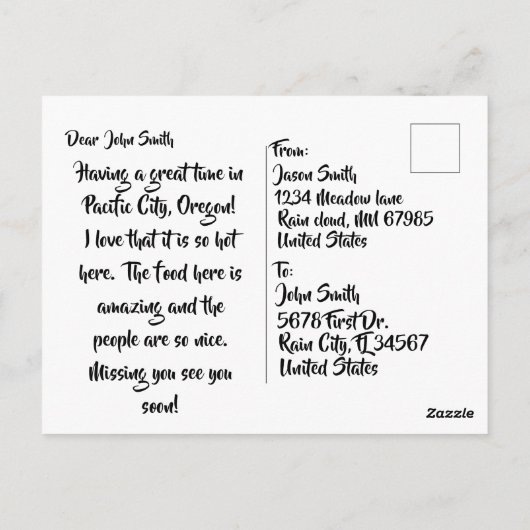 Dear John Smith
Having a great time in
Pacific City, Oregon!
I love that it is so hot
here. The Food here is
amazing and the
people are so nice.
Missing you see you
soon!
From:
Jason Smith
1234 Meadow lane
Rain cloud, MN 67985
United States
To:
John Smith
5678 First Dr.
Rain City, FL 34567
United States
Zazzle